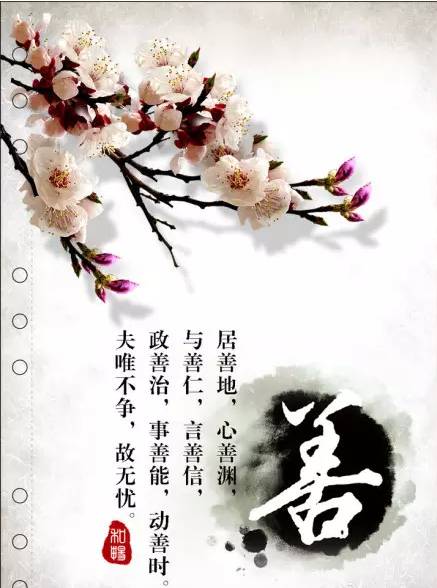 居善地，心善渊，
与善仁，言善信，
政善治，事善能，动善时。
夫唯不争，故无忧。
善